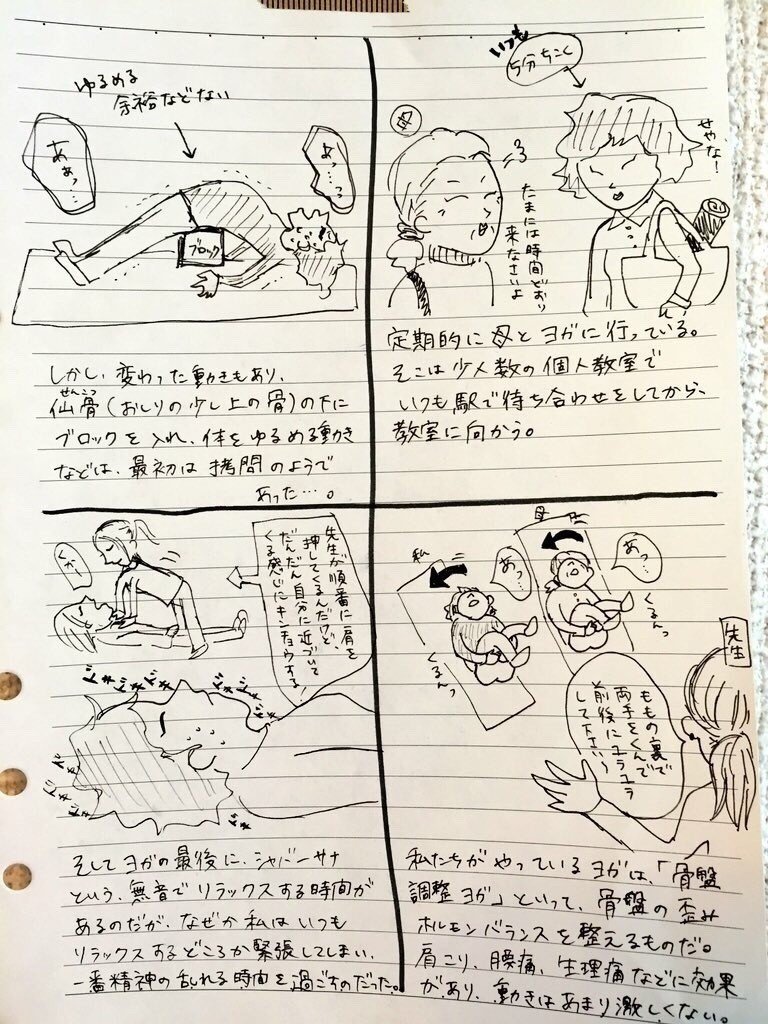 いつも
5分ちこく
せやな!
母
たまには時間どおり
来なさいよ
定期的に母とヨガに行っている。
そこは少人数の個人教室で
いつも駅で待ち合わせをしてから、
教室に向かう。
母
私
あっ…
あっ…
くるんっ
くるんっ
先生
ももの裏で
両手をくんで
前後にユラユラ
して下さい
私たちがやっているヨガは、「骨盤
調整ヨガ」といって、骨盤の歪み
ホルモンバランスを整えるものだ。
肩こり、腰痛、生理痛などに効果
があり、動きはあまり激しくない。
ゆるめる
余裕などない
よっ…っ
ああっ…
ブロック
しかし、変わった動きもあり、
せんこつ
仙骨(おしりの少し上の骨)の下に
ブロックを入れ、体をゆるめる動き
などは、最初は拷問のようで
あった…。
先生が順番に肩を
押してくるんだけど、
だんだん自分に近づいて
くる感じにキンチョウする!
くかー
どきどきどきどき
そしてヨガの最後に、シャバーサナ
という、無音でリラックスする時間が
あるのだが、なぜか私はいつも
リラックスするどころか緊張してしまい、
一番精神の乱れる時間を過ごすのだった。